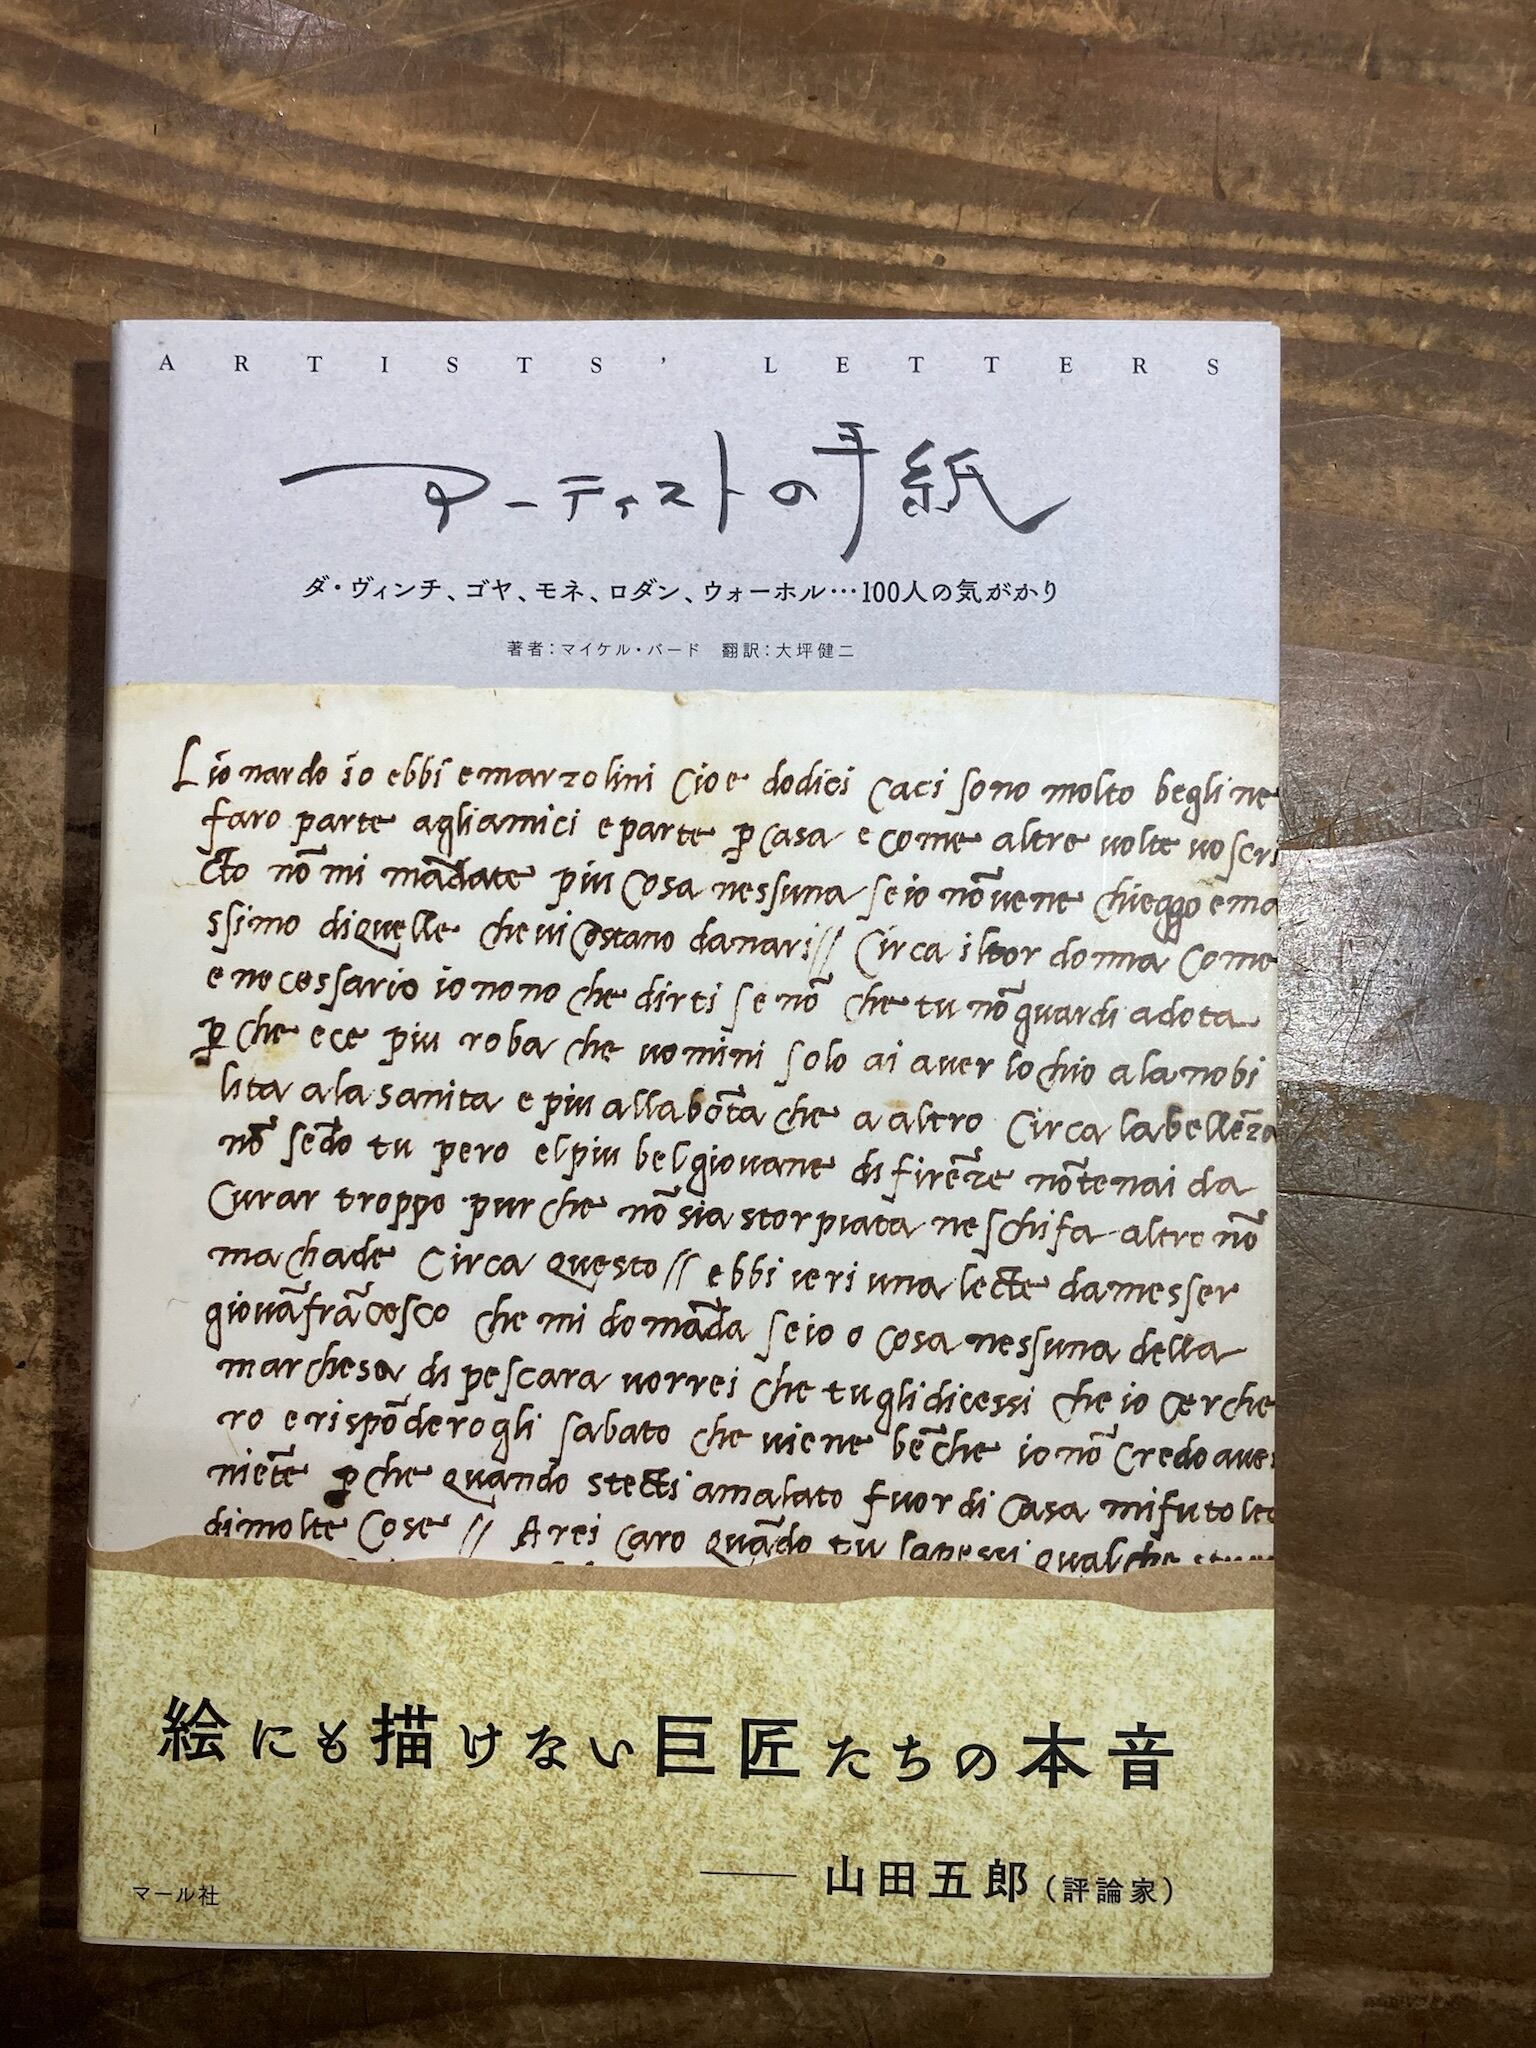 ARTISTS' LETTERS
アーティストの手紙
ダ・ヴィンチ、ゴヤ、モネ、ロダン、ウォーホル…100人の気がかり
著者：マイケル・バード　翻訳：大坪健二
Lionardo io ebbi e marzolini cioe dodici caci sono molto begli ne
faro parte agli amici e parte p casa e come altre volte vo scri
cto nō mi mādate piu cosa nessuna se io nō ve ne chieggo e ma
ssimo di quelle che vi costano danari // Circa il tor donna come
e necessario io non o che dirti se nō che tu nō guardi a dota
p che e ce piu roba che uomini solo ai aver lochio a la nobi
lita a la sanita e piu alla bōta che a altro Circa la bellēza
nō sēdo tu pero el piu bel giovane di firēze nō te nai da
curar troppo pur che nō sia storpiata ne schifa altro nō
m achade circa questo // ebbi ieri una lecte da messer
giovāfrācesco che mi domāda se io o cosa nessuna della
marchesa di pescara vorrei che tu gli dicessi che io cerche
ro e rispōderogli sabato che viene bēche io nō credo aver
niēte p che quando stecti amalato fuor di casa mi fu tolto
di molte cose // Arei caro quādo tu sapessi qualche
絵にも描けない巨匠たちの本音
―― 山田五郎（評論家）
マール社